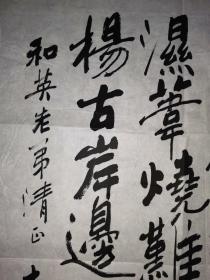 濕葦燒難
楊古岸邊
和英老弟清正